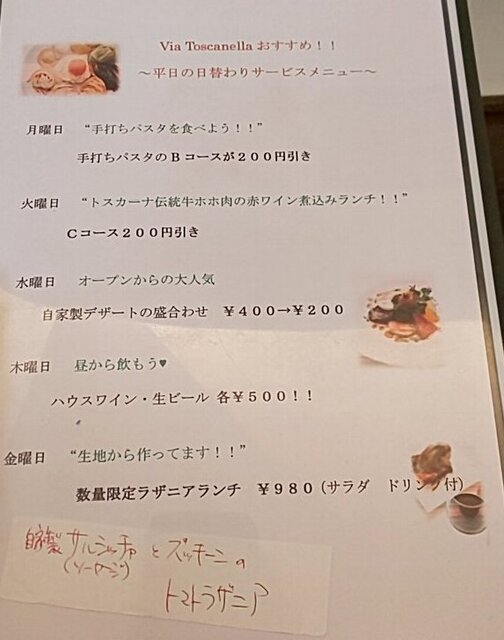 Via Toscanella おすすめ！！
～平日の日替わりサービスメニュー～
月曜日 “手打ちパスタを食べよう！！”
手打ちパスタのＢコースが２００円引き
火曜日 “トスカーナ伝統牛ホホ肉の赤ワイン煮込みランチ！！”
Ｃコース２００円引き
水曜日 オープンからの大人気
自家製デザートの盛合わせ ￥４００→￥２００
木曜日 昼から飲もう♥
ハウスワイン・生ビール 各￥５００！！
金曜日 “生地から作ってます！！”
数量限定ラザニアランチ ￥９８０（サラダ ドリンク付）
自家製 サルシッチャ と ズッキーニの
(ソーセージ)
トマトラザニア